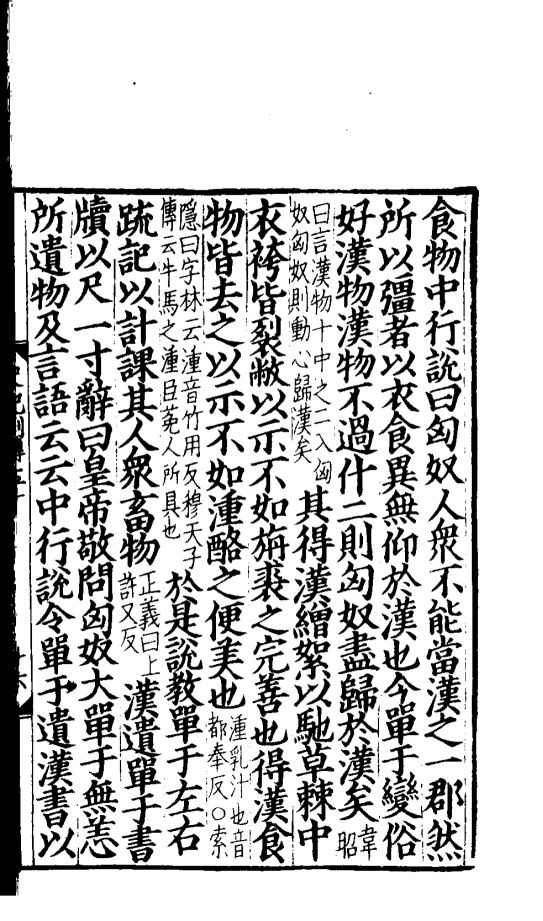 食物中行說曰匈奴人衆不能當漢之一郡然
所以彊者以衣食異無仰於漢也今單于變俗
好漢物漢物不過什二則匈奴盡歸於漢矣韋昭
曰言漢物十中之二入匈奴匈奴則動心歸漢矣其得漢繒絮以馳草棘中
衣袴皆裂敝以示不如旃裘之完善也得漢食
物皆去之以示不如湩酪之便美也湩乳汁也音都奉反○索
隱曰字林云湩音竹用反穆天子傳云牛馬之湩臣菟人所具也於是說教單于左右
疏記以計課其人衆畜物正義曰上許又反漢遺單于書
牘以尺一寸辭曰皇帝敬問匈奴大單于無恙
所遺物及言語云云中行說令單于遺漢書以